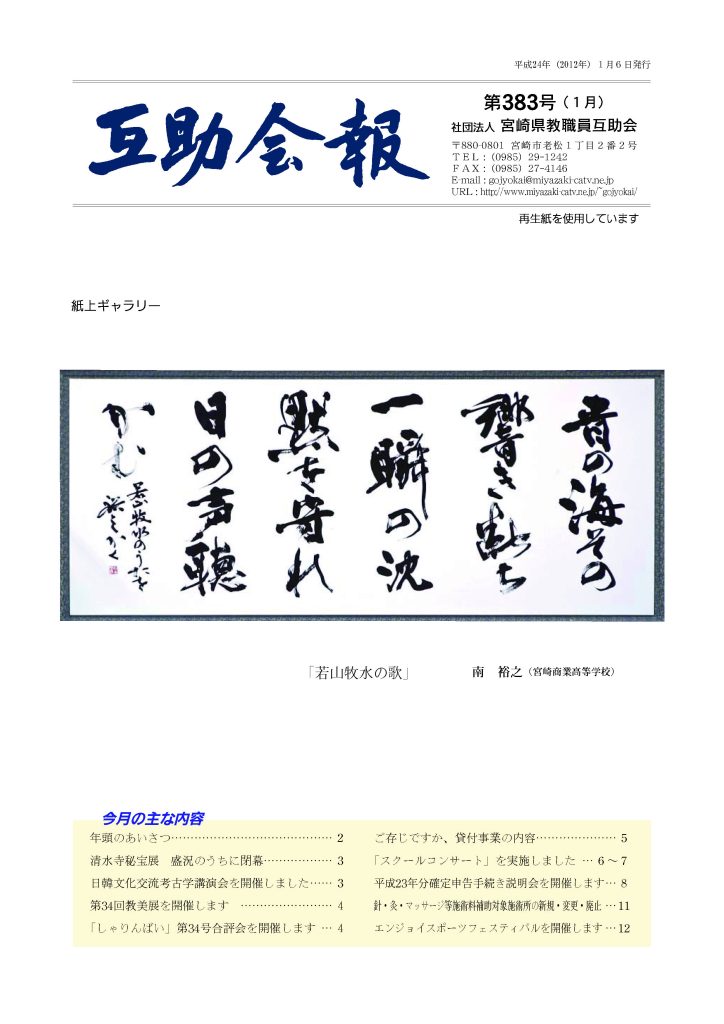 平成24年（2012年）１月６日発行
互助会報
第383号（１月）
社団法人 宮崎県教職員互助会
〒880-0801 宮崎市老松１丁目２番２号
ＴＥＬ：（0985）29-1242
ＦＡＸ：（0985）27-4146
E-mail：gojyokai@miyazaki-catv.ne.jp
URL：http://www.miyazaki-catv.ne.jp/~gojyokai/
再生紙を使用しています
紙上ギャラリー
音の海その
響き断ち
一瞬の沈
黙を守れ
日の声聴
かむ
若山牧水のうたを
裕之かく
「若山牧水の歌」 南　裕之（宮崎商業高等学校）
今月の主な内容
年頭のあいさつ…………………………………… 2
清水寺秘宝展　盛況のうちに閉幕……………… 3
日韓文化交流考古学講演会を開催しました…… 3
第34回教美展を開催します …………………… 4
「しゃりんばい」第34号合評会を開催します … 4
ご存じですか、貸付事業の内容………………… 5
「スクールコンサート」を実施しました … 6～7
平成23年分確定申告手続き説明会を開催します… 8
針・灸・マッサージ等施術料補助対象施術所の新規・変更・廃止 …11
エンジョイスポーツフェスティバルを開催します …12